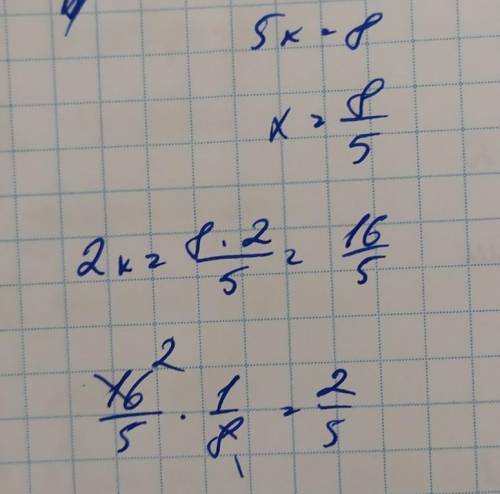 5x = 8
x = 8/5
2x = 8 · 2/5 = 16/5
16/5 2 · 1/8 1 = 2/5